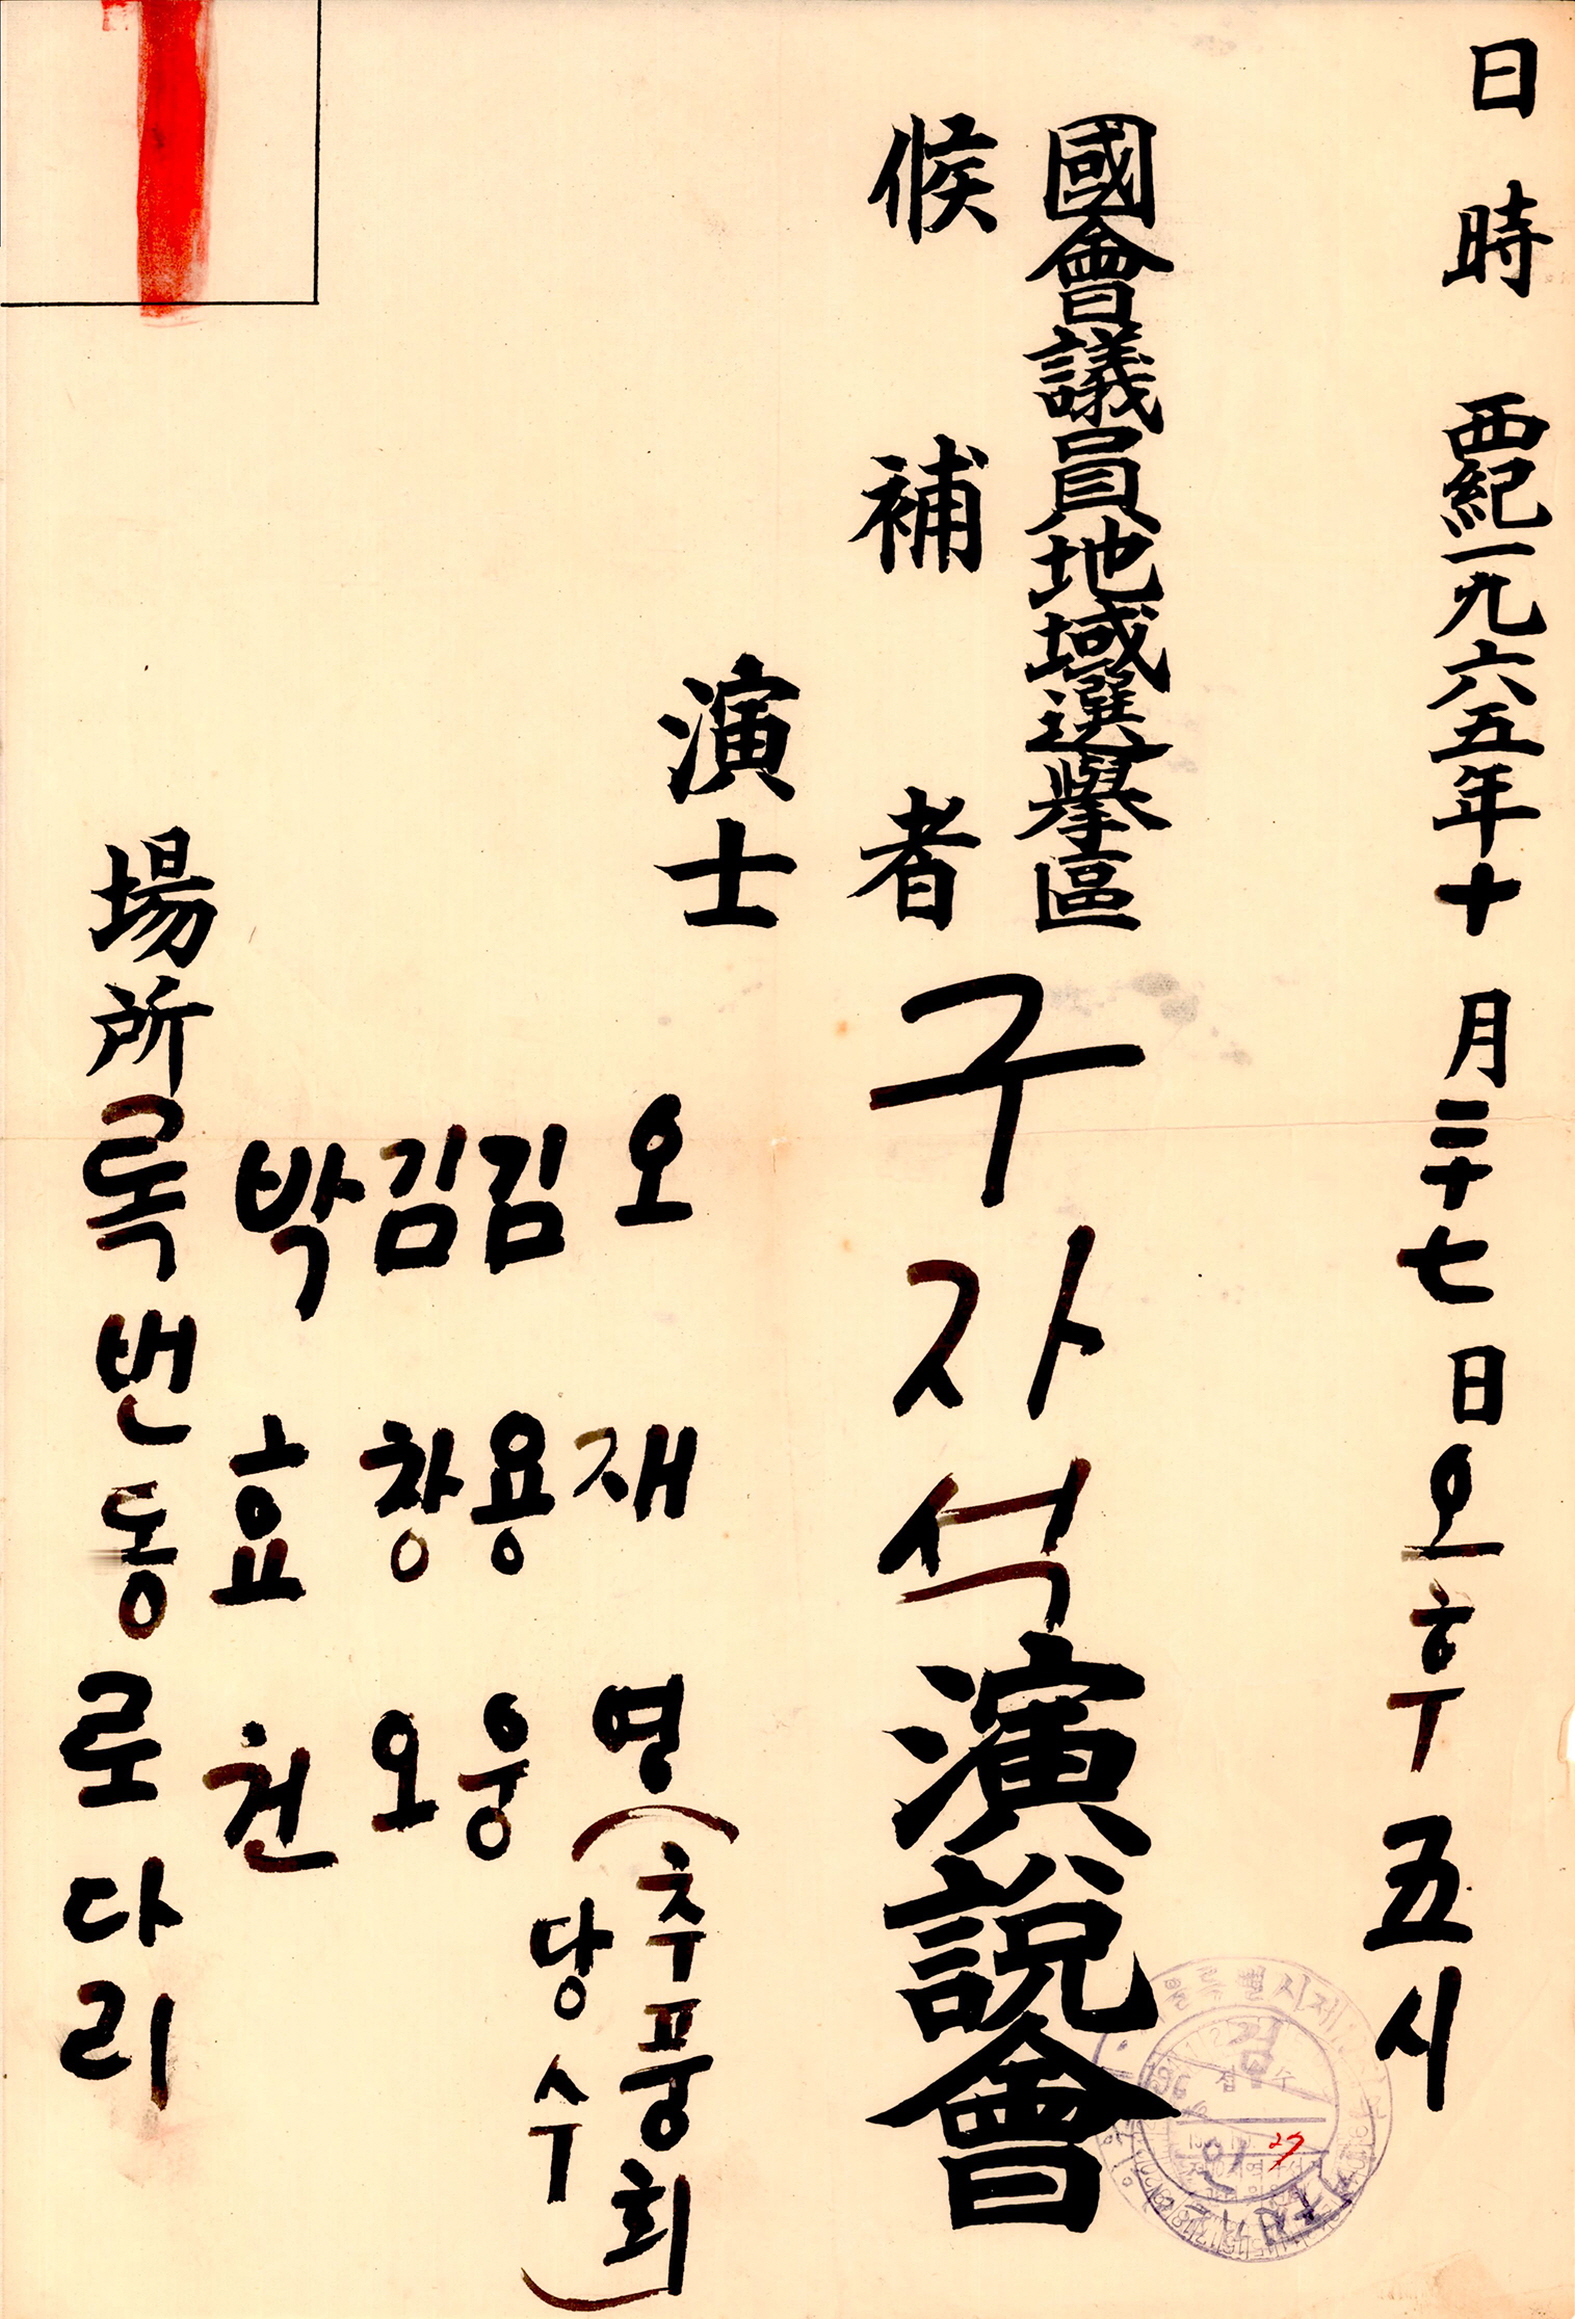 日時 西紀一九六五年十月二十七日오후五시
國會議員地域選擧區
候補者 구자석演說會
演士 오재영(추풍회
당수)
김용웅
김창오
박효천
場所록번동로다리
27